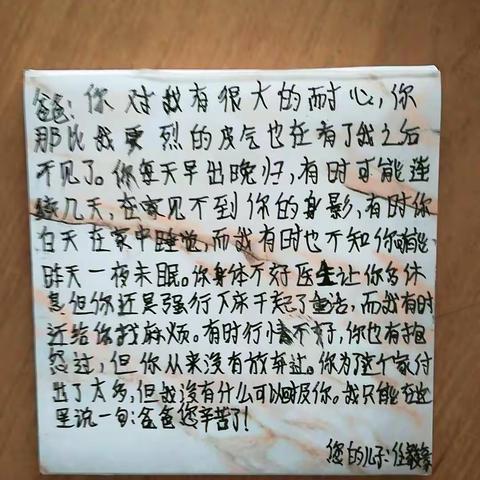 爸爸:你对我有很大的耐心,你
那比我更烈的皮气也在有了我之后
不见了。你每天早出晚归,有时可能连
续几天,在家见不到你的身影,有时你
白天在家中睡觉,而我有时也不知你可能
昨天一夜未眠。你身体不好医生让你多休
息但你还是强行下床干起了重活,而我有时
还给你找麻烦。有时行情不好,你也有抱
怨过,但你从来没有放弃过。你为了这个家付
出了太多,但我没有什么可以帮及你。我只能在这
里说一句:爸爸您辛苦了!
您的儿子:任